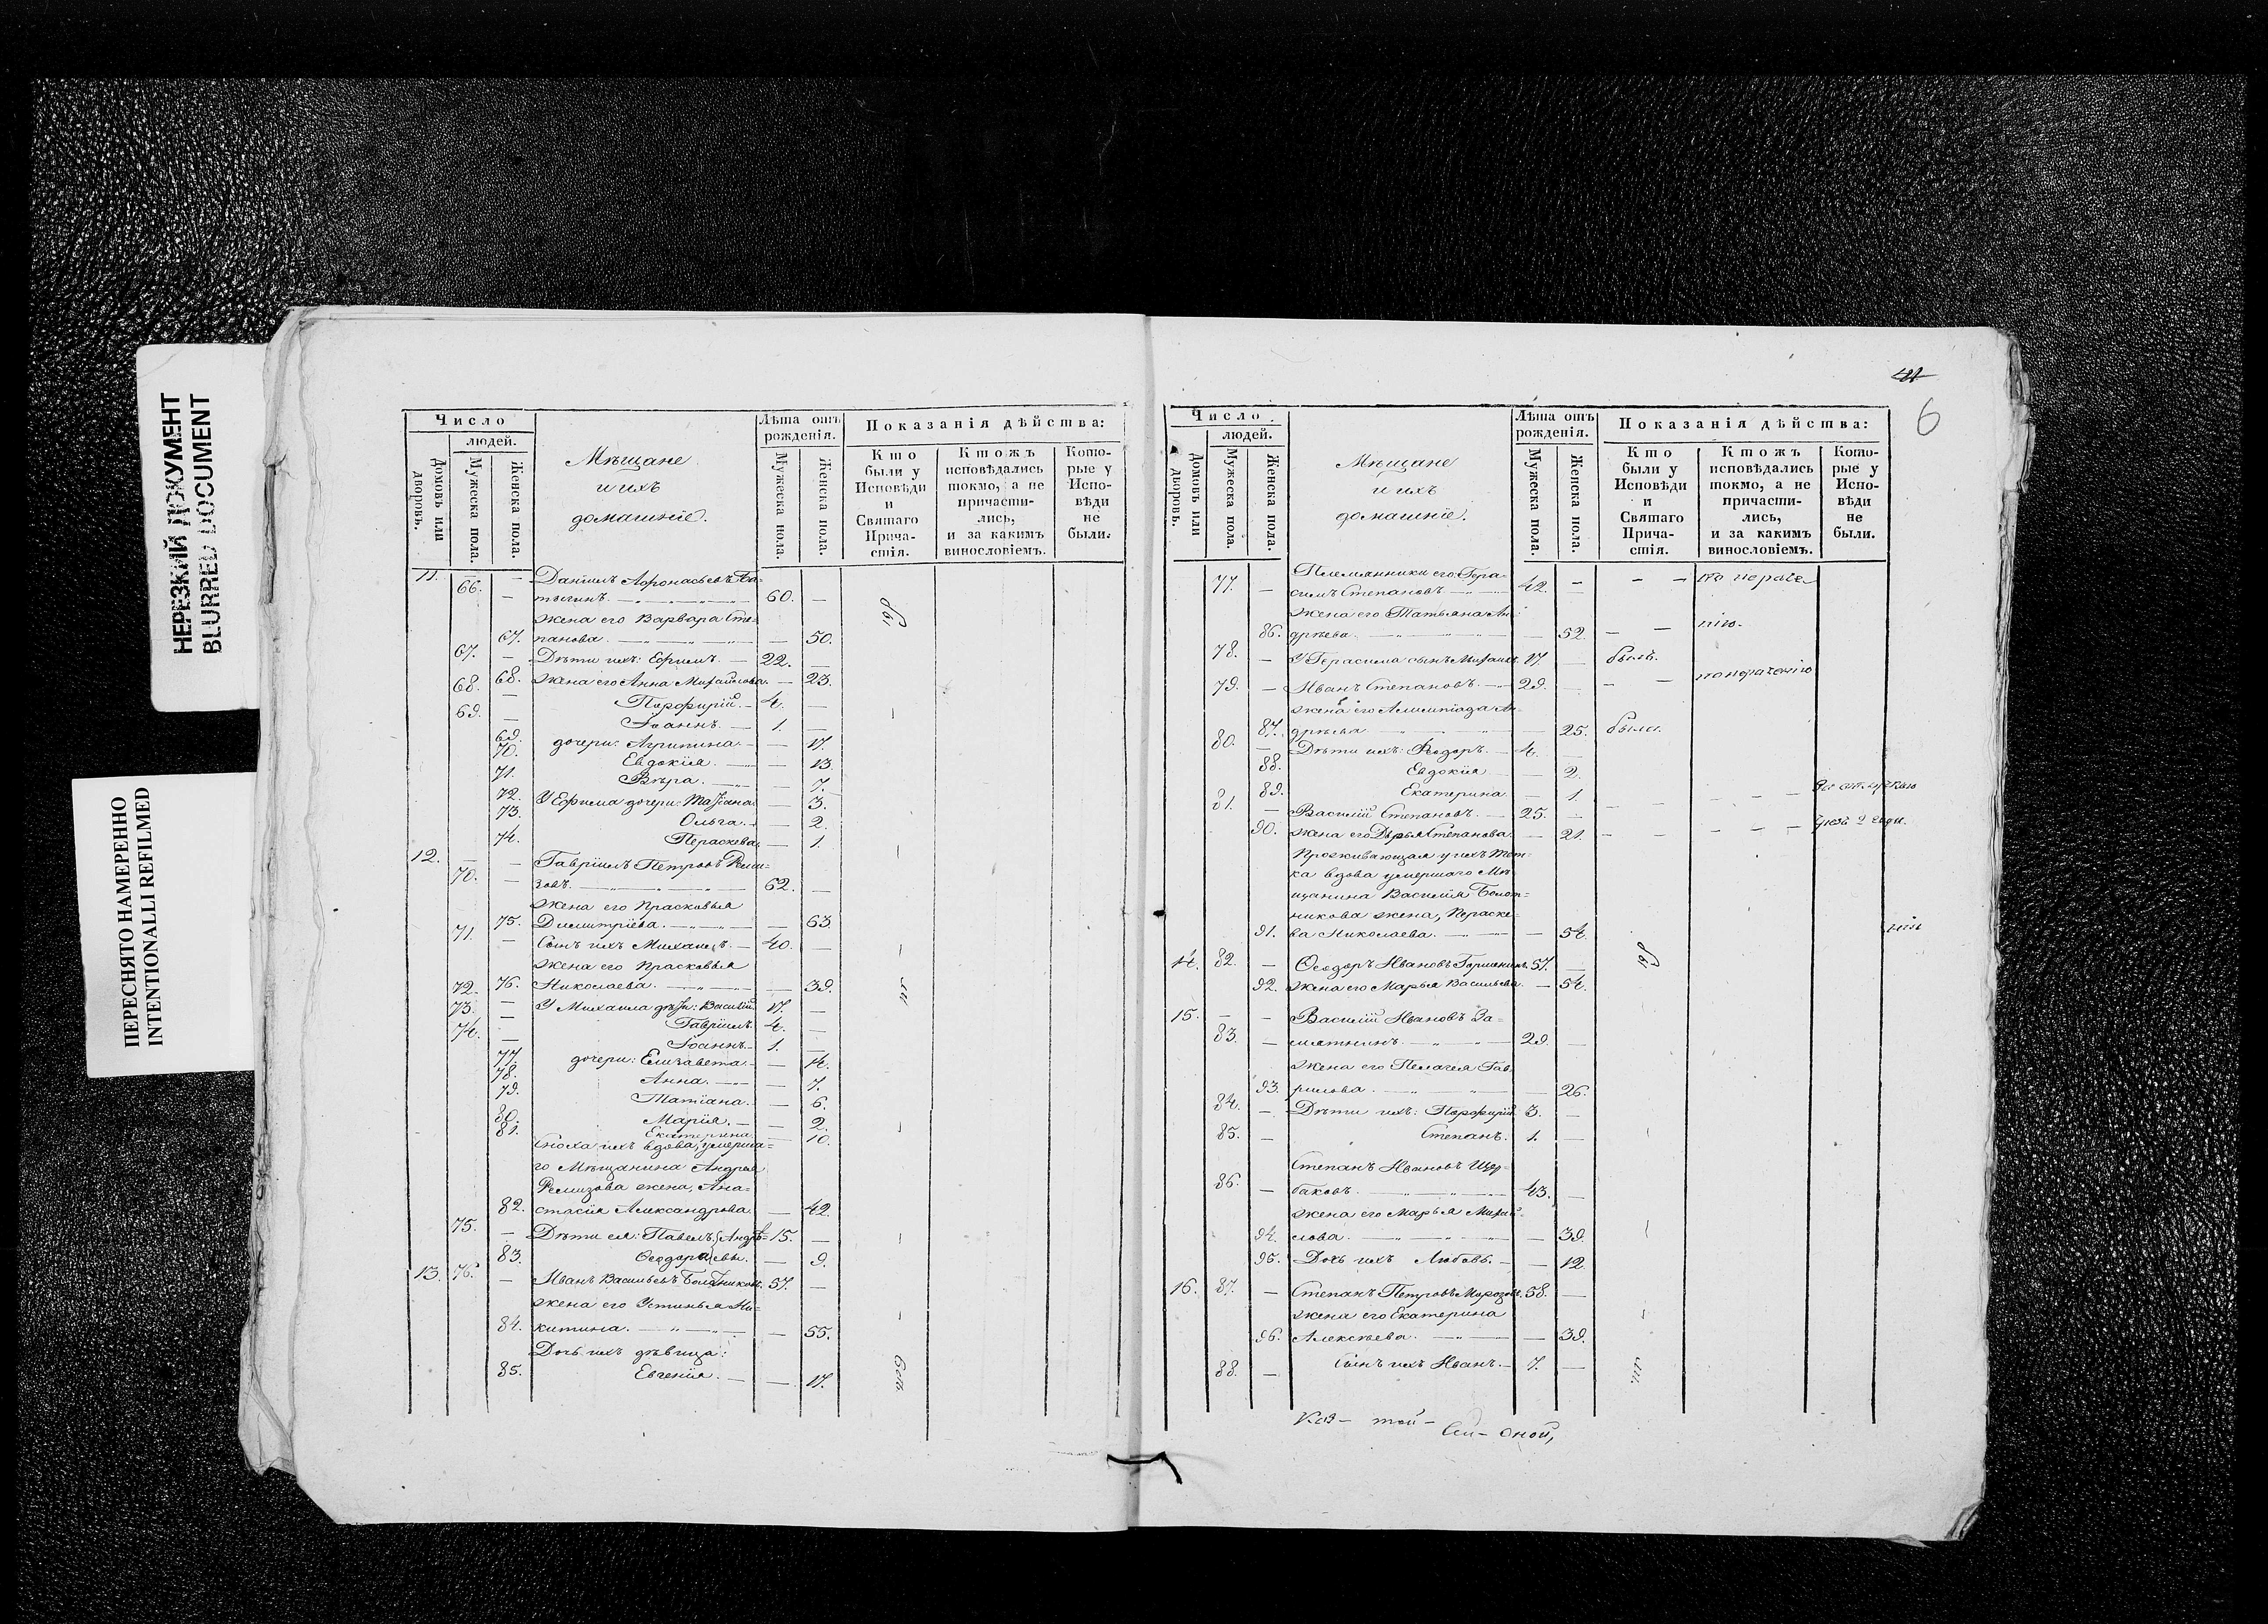 НЕРЕЗКИЙ ДОКУМЕНТ
BLURRED DOCUMENT
ПЕРЕСНЯТО НАМЕРЕННО
INTENTIONALLI REFILMED
Число
людей.
Домовъ или дворовъ.
Мужеска пола.
Женска пола.
Мѣщане
и ихъ
домашніе.
Лѣта отъ рожденія.
Мужеска пола.
Женска пола.
Показанія дѣйства:
Кто были у Исповѣди и Святаго Прича-стія.
Ктожъ исповѣдались токмо, а не причасти-лись, и за какимъ винословіемъ.
Кото-рые у Испо-вѣди не были.
11. — — Даніилъ Афонасьевъ Ба-
66. — тыгинъ. 60. —
жена его Варвара Сте-
67. панова. — 50.
67. — Дѣти ихъ: Ефимъ. — 22. —
68. жена его Анна Михайлова. — 23.
68. Порфирій. — 4. —
69. — Іоаннъ. — 1. —
69. дочери: Агрипина. — 17.
70. Евдокія. — 13.
71. Вѣра. — 7.
72. У Ефима дочери: Татіана — 3.
73. Ольга. — 2.
74. Пераскева. — 1.
12. — — Гавріилъ Петровъ Реми-
70. — зовъ. 62. —
жена его Прасковья
75. Димитріева. — 63.
71. — Сынъ ихъ Михаилъ. — 40. —
жена его Прасковья
76. Николаева. — 39.
72. — У Михаила дѣти: Василій 17. —
73. — Гавріилъ. 4. —
74. — Іоаннъ. 1. —
77. дочери: Елизавета. — 14.
78. Анна. — 7.
79. Татіана. — 6.
80. Марія. — 2.
81. Екатерина. — 10.
Сноха ихъ вдова, умерша-
го Мѣщанина Андрея
Ремизова жена, Ана-
82. стасія Александрова. — 42.
75. — Дѣти ея: Павелъ (Андрѣ- 15. —
83. Ѳеодора) евы. — 9.
13. 76. — Иванъ Васильевъ Болотниковъ. 57. —
жена его Устинья Ни-
84. китина. — 55.
Дочь ихъ дѣвица:
85. Евгенія. — 17.
41
6
Число
людей.
Домовъ или дворовъ.
Мужеска пола.
Женска пола.
Мѣщане
и ихъ
домашніе.
Лѣта отъ рожденія.
Мужеска пола.
Женска пола.
Показанія дѣйства:
Кто были у Исповѣди и Святаго Прича-стія.
Ктожъ исповѣдались токмо, а не причасти-лись, и за какимъ винословіемъ.
Кото-рые у Испо-вѣди не были.
Племянники его: Гера-
77. — симъ Степановъ. 42. —
жена его Татьяна Ан-
86. дрѣева. — 52. — —
78. — У Герасима сынъ Михаилъ. 17. — былъ.
79. — Иванъ Степановъ. — 29. — — —
жена его Алимпіада Ан-
87. дрѣева — 25. была.
80. — Дѣти ихъ: Ѳеодоръ. — 4. —
88. Евдокія — 2.
89. Екатерина. — 1.
81. — Василій Степановъ. — 25. —
90. жена его Дарья Степанова. — 21.
Проживающая у нихъ Тет-
ка вдова умершаго Мѣ-
щанина Василія Болот-
никова жена, Пераске-
91. ва Николаева. — 54.
14. 82. — Ѳеодоръ Ивановъ Горшкинъ. 57. —
92. жена его Марья Васильева. — 54.
15. — — Василій Ивановъ За-
83. — мятнинъ. 29. —
жена его Пелагея Гав-
93. рилова. — 26.
84. — Дѣти ихъ: Порфирій 3. —
85. — Степанъ. 1. —
Степанъ Ивановъ Щер-
86. — баковъ. 43. —
жена его Марья Михай-
94. лова. — 39.
95. Дочь ихъ Любовь. — 12.
16. 87. — Степанъ Петровъ Морозовъ. 58. —
жена его Екатерина
96. Алексѣева. — 39.
88. — Сынъ ихъ Иванъ. — 7. —